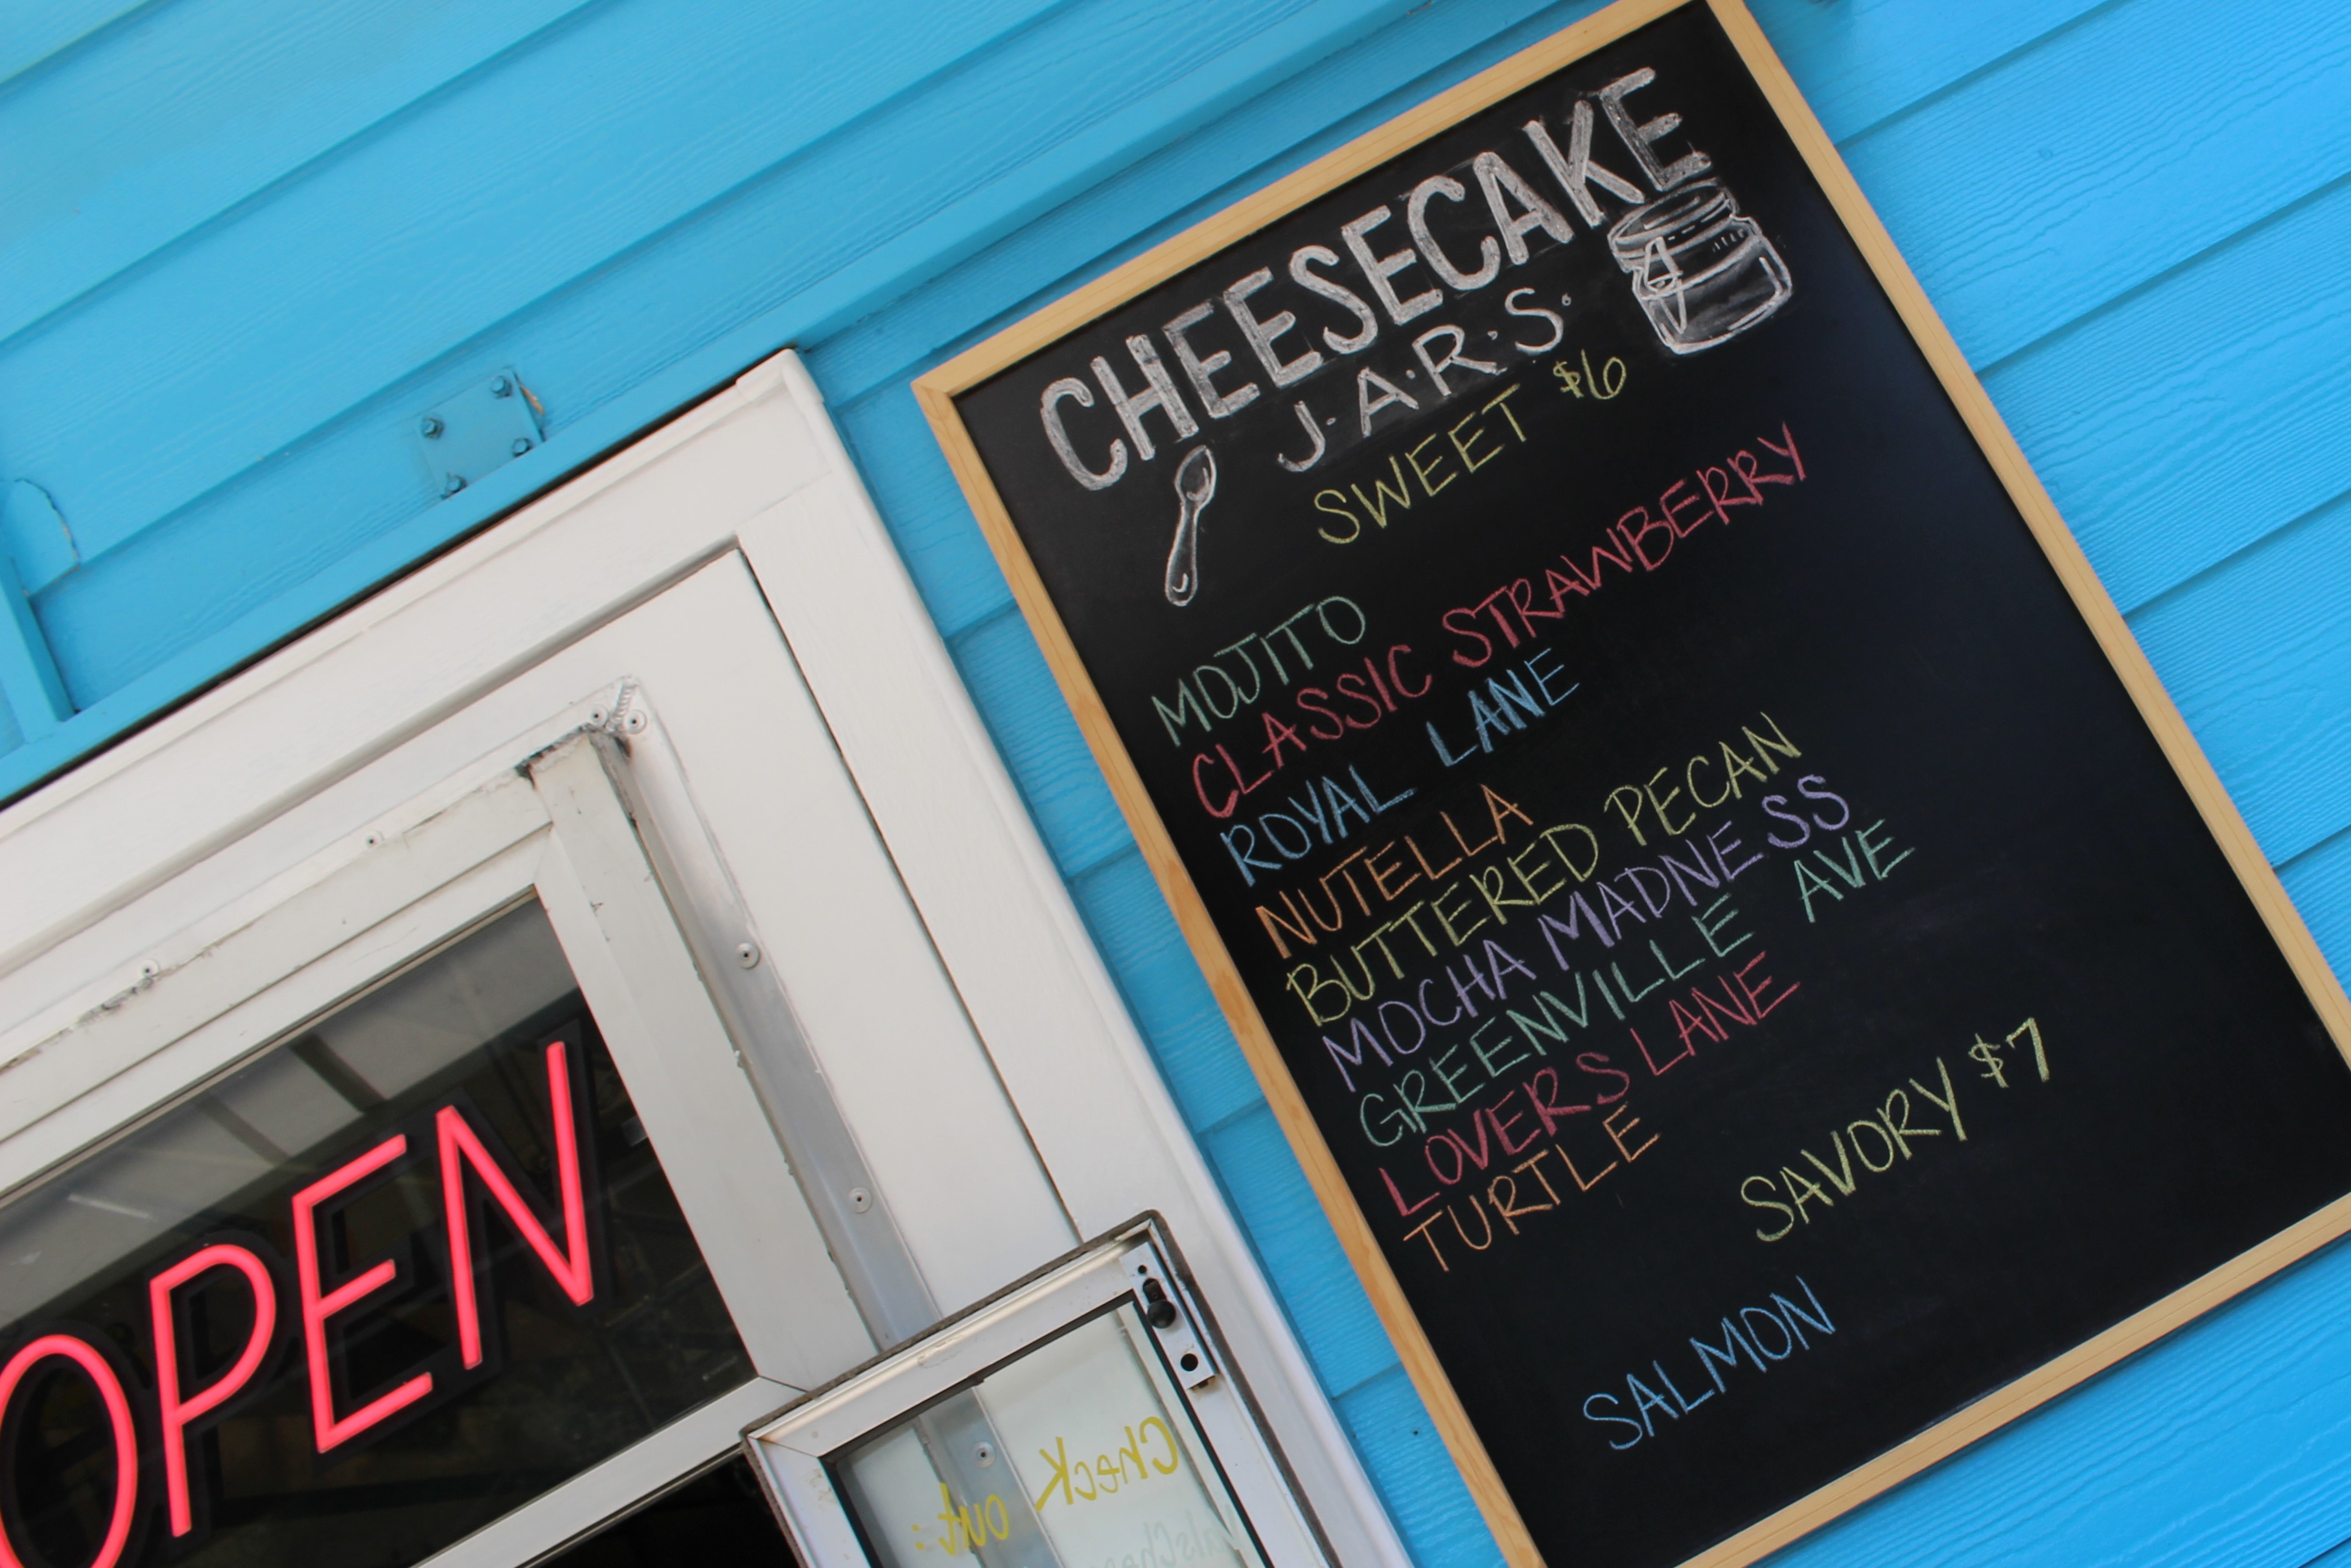 CHEESECAKE
J.A.R.S.
SWEET $6
MOJITO
CLASSIC STRAWBERRY
ROYAL LANE
NUTELLA
BUTTERED PECAN
MOCHA MADNESS
GREENVILLE AVE
LOVERS LANE
TURTLE
SAVORY $7
SALMON
OPEN
Check
out: